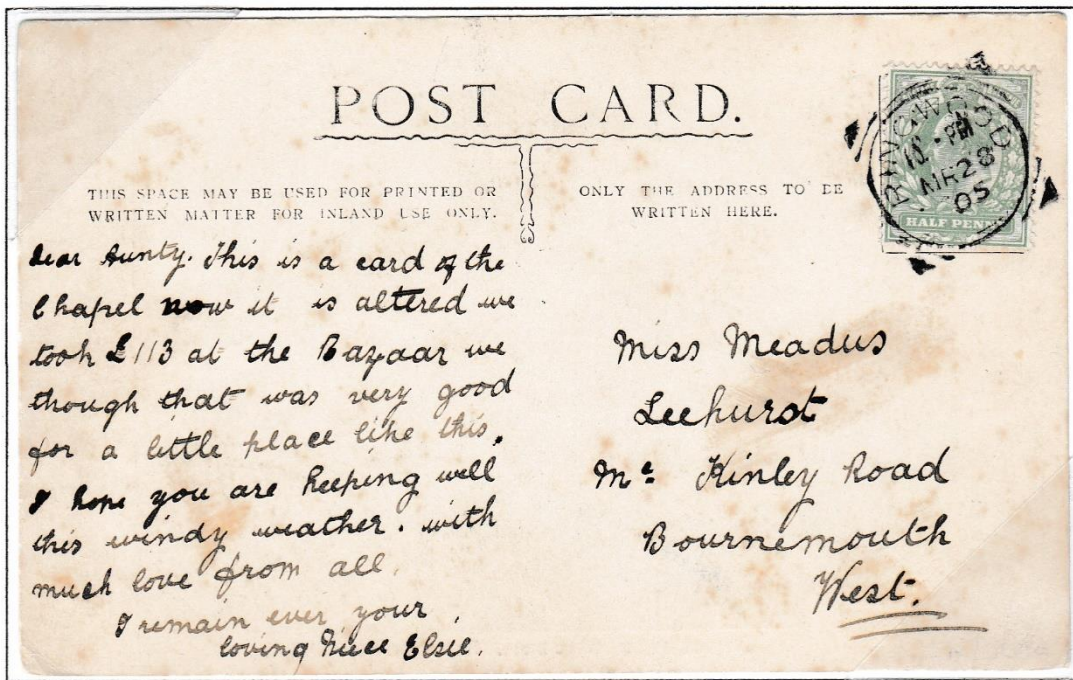 POST CARD.
THIS SPACE MAY BE USED FOR PRINTED OR
WRITTEN MATTER FOR INLAND USE ONLY.
ONLY THE ADDRESS TO BE
WRITTEN HERE.
RINGWOOD
PM
MR 28
05
HALF PENNY
Dear Aunty. This is a card of the
Chapel now it is altered we
took £113 at the Bazaar we
though that was very good
for a little place like this.
I hope you are keeping well
this windy weather. with
much love from all.
I remain ever your
loving Niece Elsie.
Miss Meadus
Leehurst
Mc Kinley Road
Bournemouth
West.